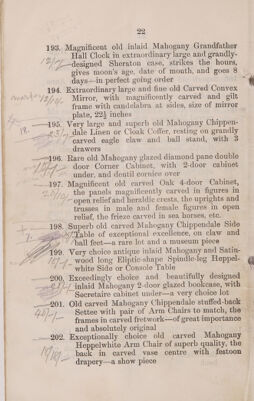 22
193. Magnificent old inlaid Mahogany Grandfather
Hall Clock in extraordinary large and grandly-
designed Sheraton case, strikes the hours,
gives moon's age, date of month, and goes 8
days—in perfect going order
194. Extraordinary large and fine old Carved Convex
Mirror, with magnificently carved and gilt
frame with candelabra at sides, size of mirror
plate, 22½ inches
195. Very large and superb old Mahogany Chippen-
dale Linen or Cloak Coffer, resting on grandly
carved eagle claw and ball stand, with 3
drawers
196. Rare old Mahogany glazed diamond pane double
door Corner Cabinet, with 2-door cabinet
under, and dentil cornice over
197. Magnificent old carved Oak 4-door Cabinet,
the panels magnificently carved in figures in
open relief and heraldic crests, the uprights and
trusses in male and female figures in open
relief, the frieze carved in sea horses, etc.
198. Superb old carved Mahogany Chippendale Side
Table of exceptional excellence, on claw and
ball feet—a rare lot and a museum piece
199. Very choice antique inlaid Mahogany and Satin-
wood long Elliptic-shape Spindle-leg Heppel-
white Side or Console Table
200. Exceedingly choice and beautifully designed
inlaid Mahogany 2-door glazed bookcase, with
Secretaire cabinet under—a very choice lot
201. Old carved Mahogany Chippendale stuffed-back
Settee with pair of Arm Chairs to match, the
frames in carved fretwork—of great importance
and absolutely original
202. Exceptionally choice old carved Mahogany
Heppelwhite Arm Chair of superb quality, the
back in carved vase centre with festoon
drapery—a show piece